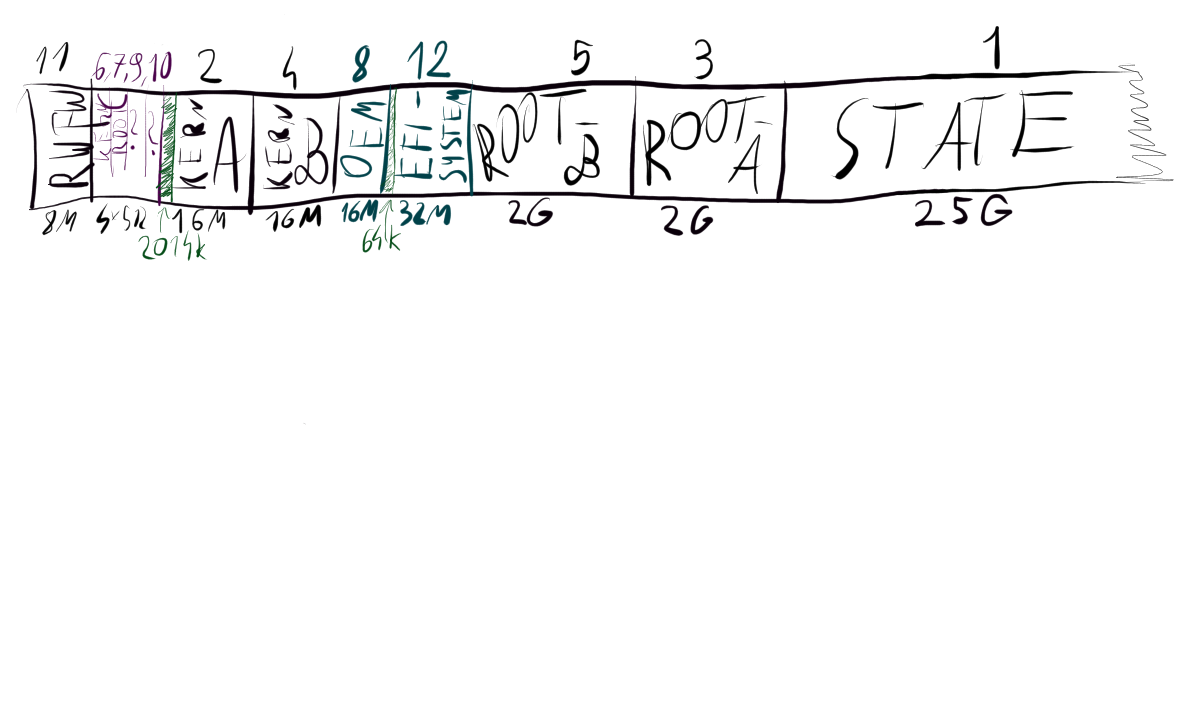 11 6,7,9,10 2 4 8 12 5 3 1
RWFW KERN ROOT C ?? ?? KERN A KERN B OEM EFI-SYSTEM ROOT-B ROOT-A STATE
8M 16M 16M 16M 32M 2G 2G 25G
↑ ↑
2014k 64k